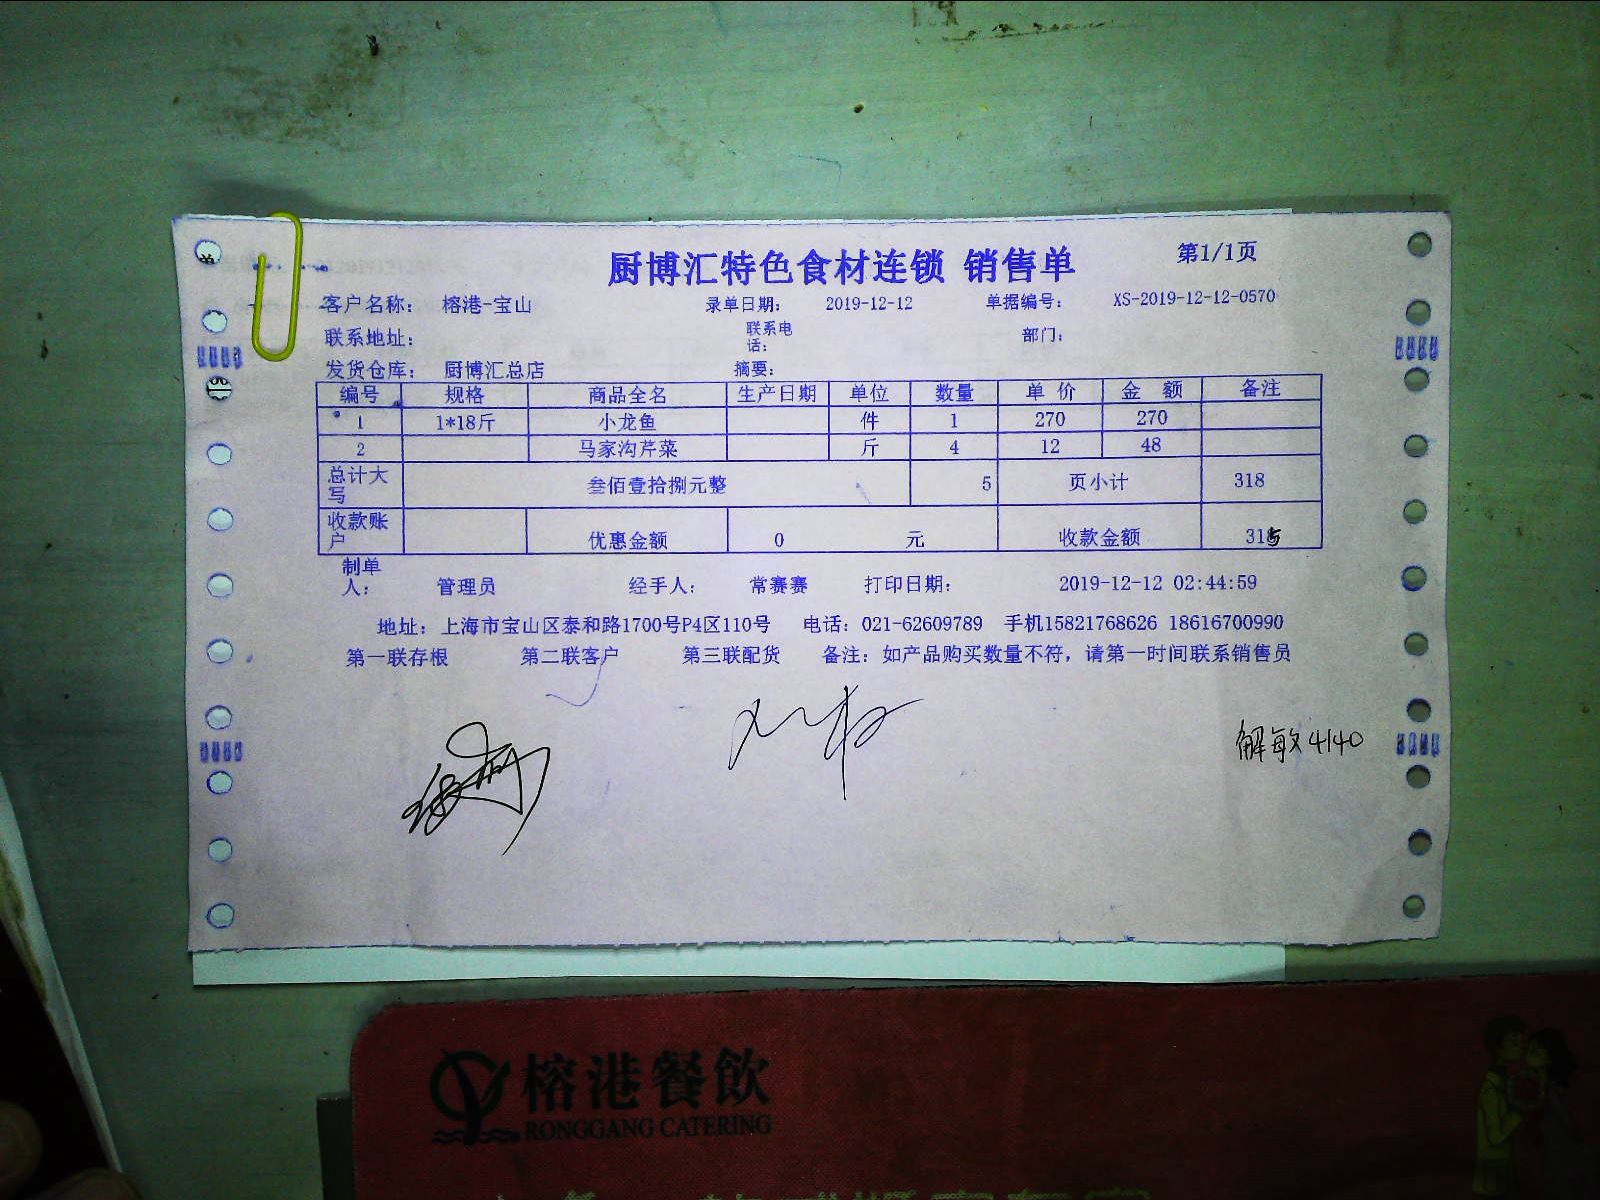 厨博汇特色食材连锁 销售单 第1/1页
客户名称： 榕港-宝山 录单日期： 2019-12-12 单据编号： XS-2019-12-12-0570
联系地址： 联系电话： 部门：
发货仓库： 厨博汇总店 摘要：
编号 规格 商品全名 生产日期 单位 数量 单价 金额 备注
1 1*18斤 小龙鱼 件 1 270 270
2 马家沟芹菜 斤 4 12 48
总计大写 叁佰壹拾捌元整 5 页小计 318
收款账户 优惠金额 0 元 收款金额 315
制单人： 管理员 经手人： 常赛赛 打印日期： 2019-12-12 02:44:59
地址：上海市宝山区泰和路1700号P4区110号 电话：021-62609789 手机15821768626 18616700990
第一联存根 第二联客户 第三联配货 备注：如产品购买数量不符，请第一时间联系销售员
解敏4140
榕港餐飲
RONGGANG CATERING